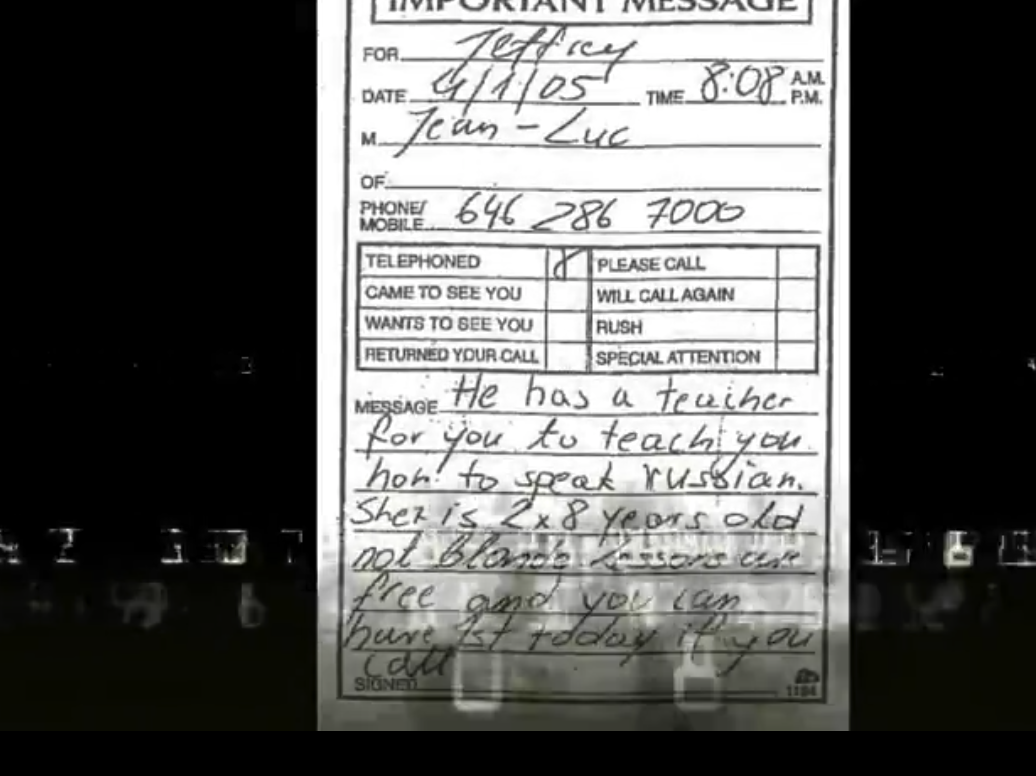 IMPORTANT MESSAGE
FOR Jeffrey
DATE 4/1/05 TIME 8:08 A.M. P.M.
M Jean-Luc
OF
PHONE/ MOBILE 646 286 7000
TELEPHONED PLEASE CALL
CAME TO SEE YOU WILL CALL AGAIN
WANTS TO SEE YOU RUSH
RETURNED YOUR CALL SPECIAL ATTENTION
MESSAGE He has a teacher
for you to teach you
how to speak russian.
She is 2x8 years old
not blonde Lessons are
free and you can
have 1st today if you
call
SIGNED
1184